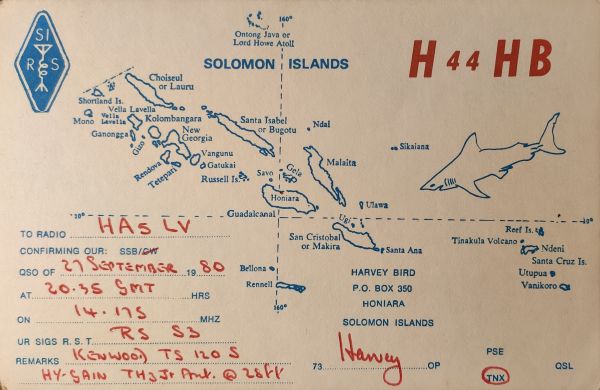 SI
R S
Ontong Java or
Lord Howe Atoll
160°
H44HB
SOLOMON ISLANDS
Choiseul
or Lauru
Shortland Is.
Vella Lavella
Mono
Vella
Lavella
Kolombangara
Ganongga
Gizo
New
Georgia
Rendova
Tetepari
Vangunu
Gatukai
Santa Isabel
or Bugotu
Ndai
Sikaiana
Malaita
Russell Is.
Savo
Gela
Honiara
Guadalcanal
Ulawa
Ugi
10°
10°
San Cristobal
or Makira
Santa Ana
Reef Is.
Tinakula Volcano
Ndeni
Santa Cruz Is.
Utupua
Vanikoro
Bellona
Rennell
160°
TO RADIO HA5LV
CONFIRMING OUR: SSB/CW
QSO OF 27 SEPTEMBER 1980
AT 20.35 GMT HRS
ON 14.175 MHZ
UR SIGS R.S.T. RS 53
REMARKS KENWOOD TS 120 S
HY-GAIN TH3Jr Ant. @ 28ft
HARVEY BIRD
P.O. BOX 350
HONIARA
SOLOMON ISLANDS
73 Harvey OP
PSE
TNX
QSL